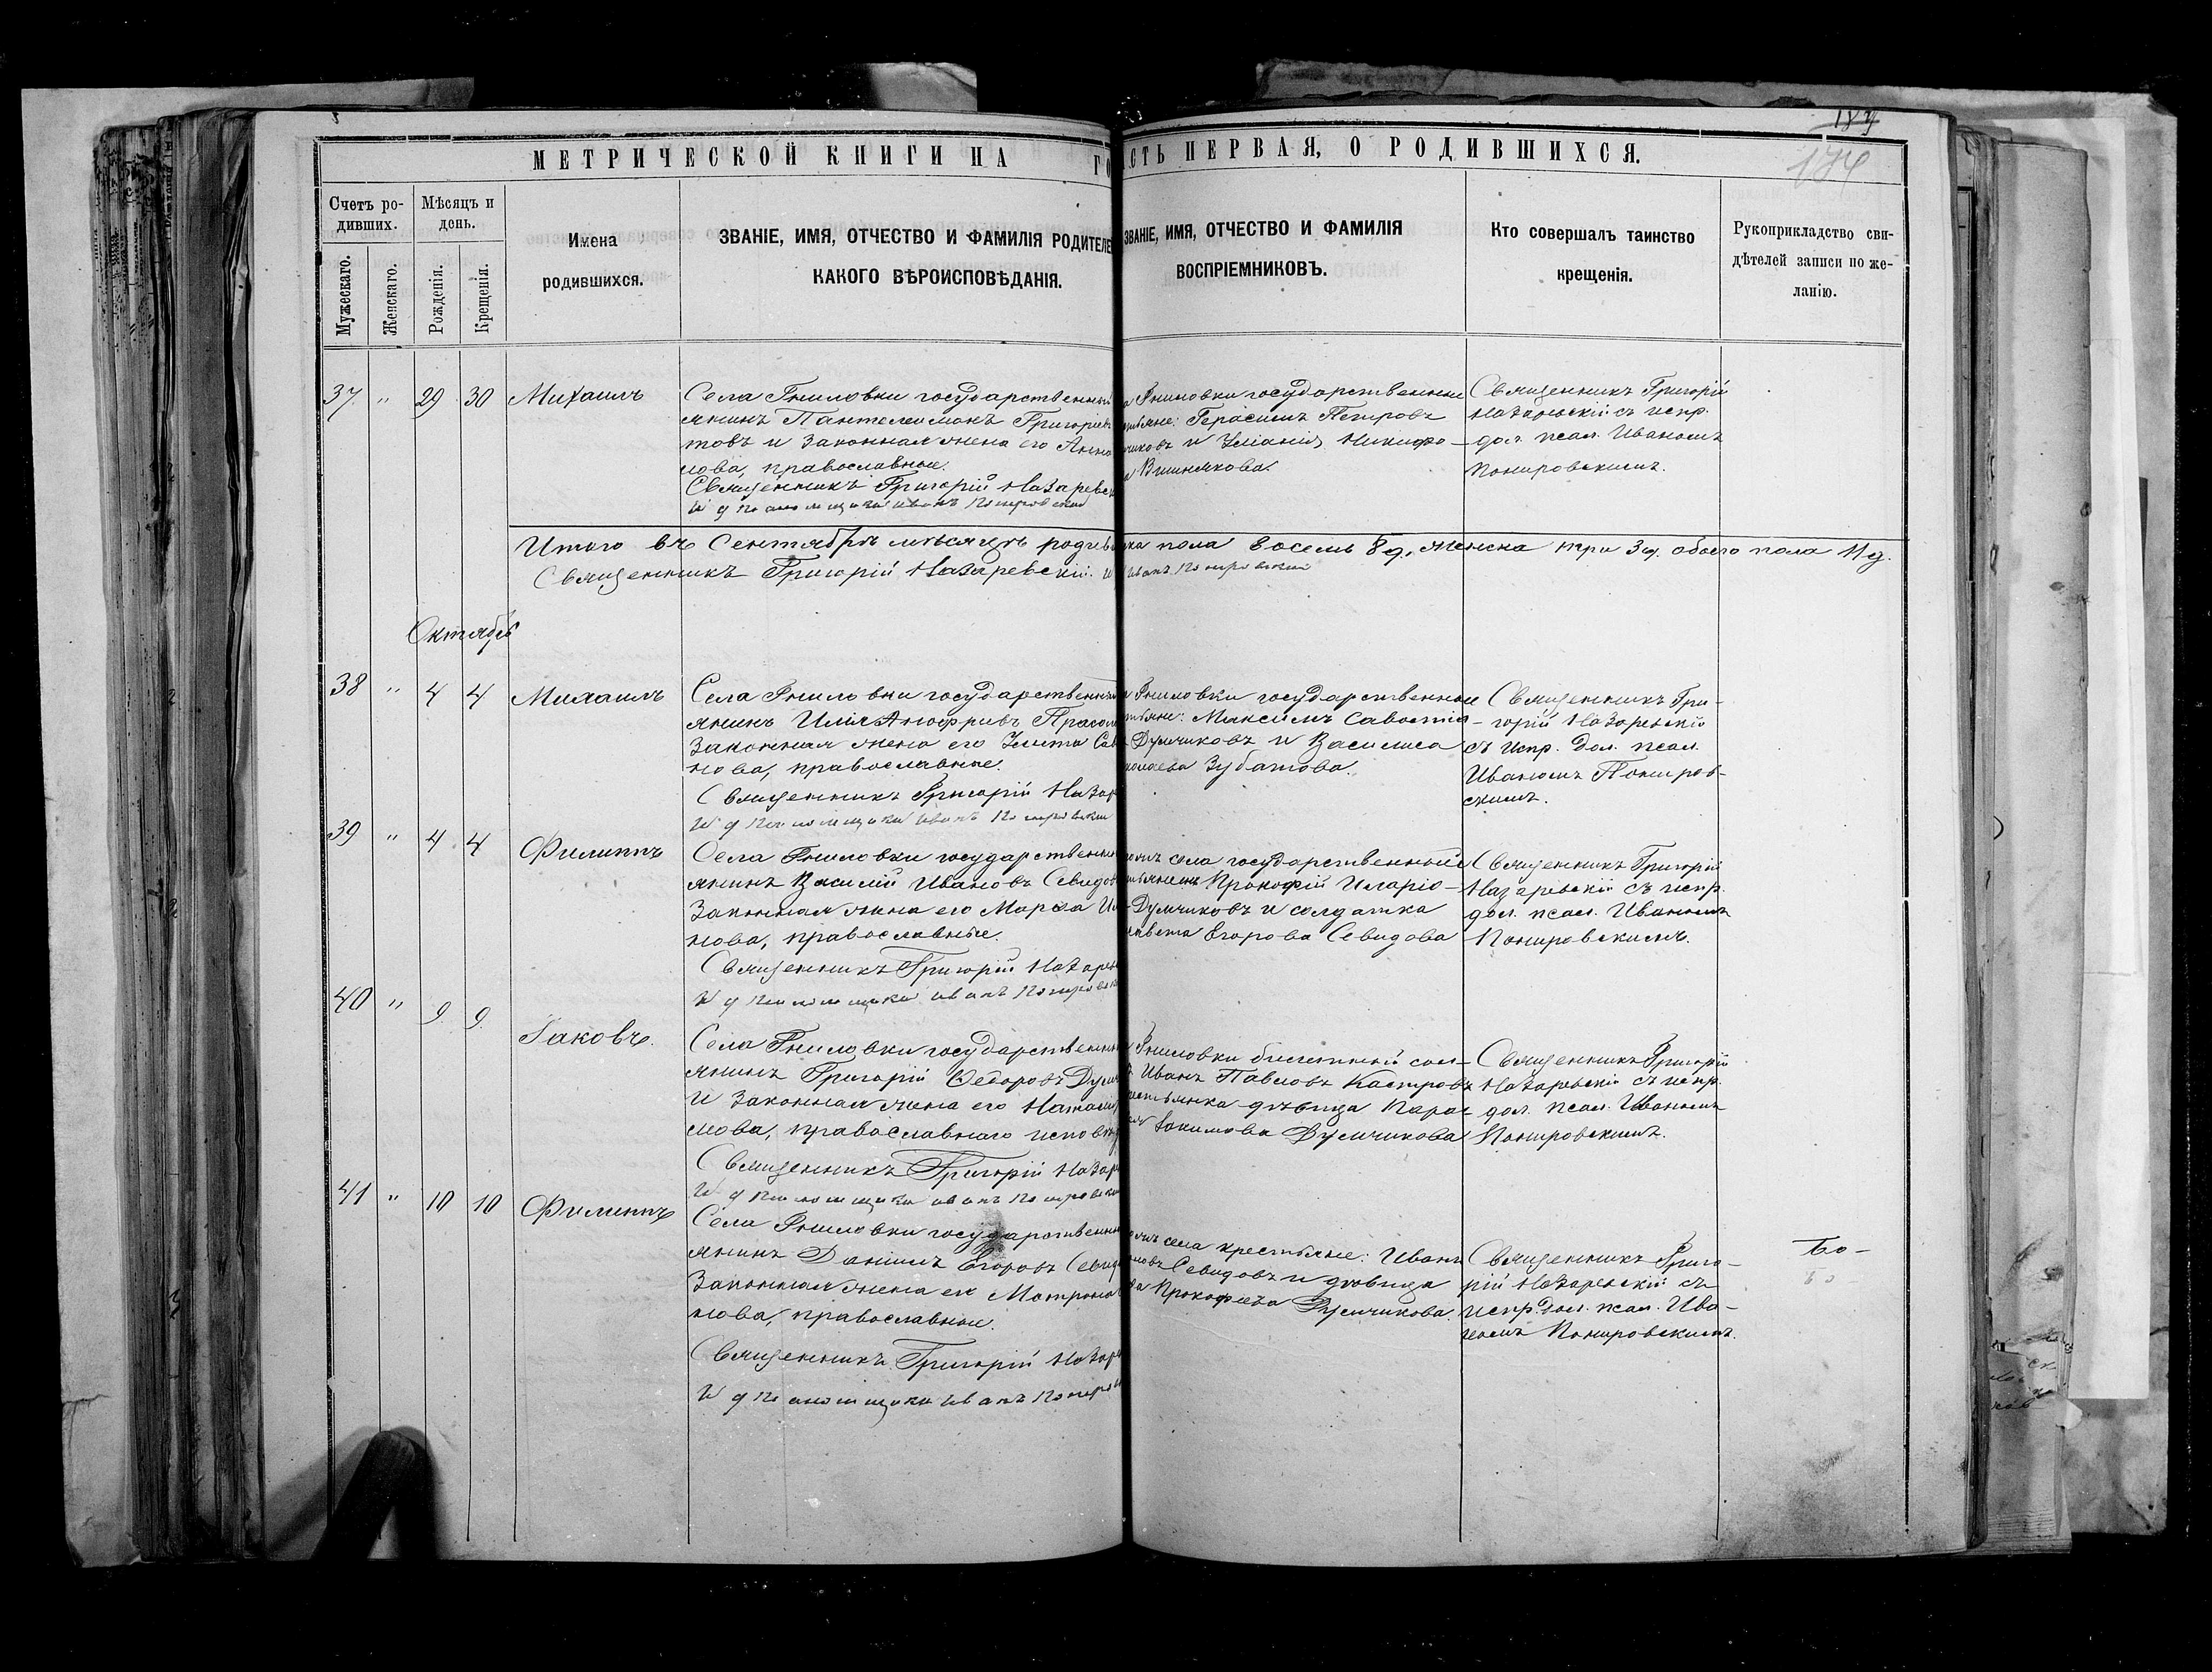 187
174
МЕТРИЧЕСКОЙ КНИГИ НА ГО
СТЬ ПЕРВАЯ, О РОДИВШИХСЯ.
Счетъ ро-
дивших.
Мѣсяцъ и
день.
Мужескаго.
Женскаго.
Рожденія.
Крещенія.
Имена
родившихся.
ЗВАНІЕ, ИМЯ, ОТЧЕСТВО И ФАМИЛІЯ РОДИТЕЛЕ
КАКОГО ВѢРОИСПОВѢДАНІЯ.
ЗВАНІЕ, ИМЯ, ОТЧЕСТВО И ФАМИЛІЯ
ВОСПРІЕМНИКОВЪ.
Кто совершалъ таинство
крещенія.
Рукоприкладство сви-
дѣтелей записи по же-
ланію.
37 " 29 30 Михаилъ
Села Гниловки государственный
янинъ Пантелеимонъ Григоріевъ
товъ и законная жена его Анна
нова, православные.
Священникъ Григорій Назаревск
И д псаломщика Иванъ Понировскій
а Гниловки государственные
стьяне: Герасимъ Петровъ
чиковъ и Уліанія Никифо-
а Вишнякова.
Священникъ Григорій
Назаревскій съ испр.
дол. псал. Иваномъ
Понировскимъ.
Итого въ Сентябрѣ мѣсяцѣ родив
ска пола восемь 8 д., женска три 3 д. обоего пола 11 д.
Священникъ Григорій Назаревскій. и
Иванъ Понировскій
Октябрь
38 " 4 4 Михаилъ
Села Гниловки государственны
янинъ Илія Анофріевъ Прасол
законная жена его Улита Сав
нова, православные.
Священникъ Григорій Назар
И д псаломщика Иванъ Понировскій
а Гниловки государственные
стьяне: Максимъ Савостія-
Думчиковъ и Василиса
колаева Зубатова.
Священникъ Гри-
горій Назаревскій
съ испр. дол. псал.
Иваномъ Пониров-
скимъ.
39 " 4 4 Филиппъ
Села Гниловки государственны
янинъ Василій Ивановъ Севидов
законная жена его Марѳа Ил
нова, православные.
Священникъ Григорій Назарев
И д псаломщика Иванъ Понировск
гожъ села государственный
стьянинъ Прокофій Иларіо-
Думчиковъ и солдатка
савета Егорова Севидова
Священникъ Григорій
Назаревскій съ испр.
дол. псал. Иваномъ
Понировскимъ.
40 " 9 9 Іаковъ.
Села Гниловки государственны
янинъ Григорій Ѳедоровъ Думч
и законная жена его Наталія
мова, православнаго исповѣд
Священникъ Григорій Назар
И д псаломщика Иванъ Понировск
а Гниловки билетный сол-
ъ Иванъ Павловъ Кастровъ
рестьянка дѣвица Парас
ія Іокимова Думчикова
Священникъ Григорій
Назаревскій съ испр.
дол. псал. Иваномъ
Понировскимъ.
41 " 10 10 Филиппъ
Села Гниловки государственны
янинъ Даніилъ Егоровъ Севид
законная жена его Матрона
нова, православные.
Священникъ Григорій Назар
И д псаломщика Иванъ Понировс
гожъ села крестьяне: Иванъ
новъ Севидовъ и дѣвица
ва Прокофіева Думчикова.
Священникъ Григо-
рій Назаревскій съ
испр. дол. псал. Ива-
номъ Понировскимъ.